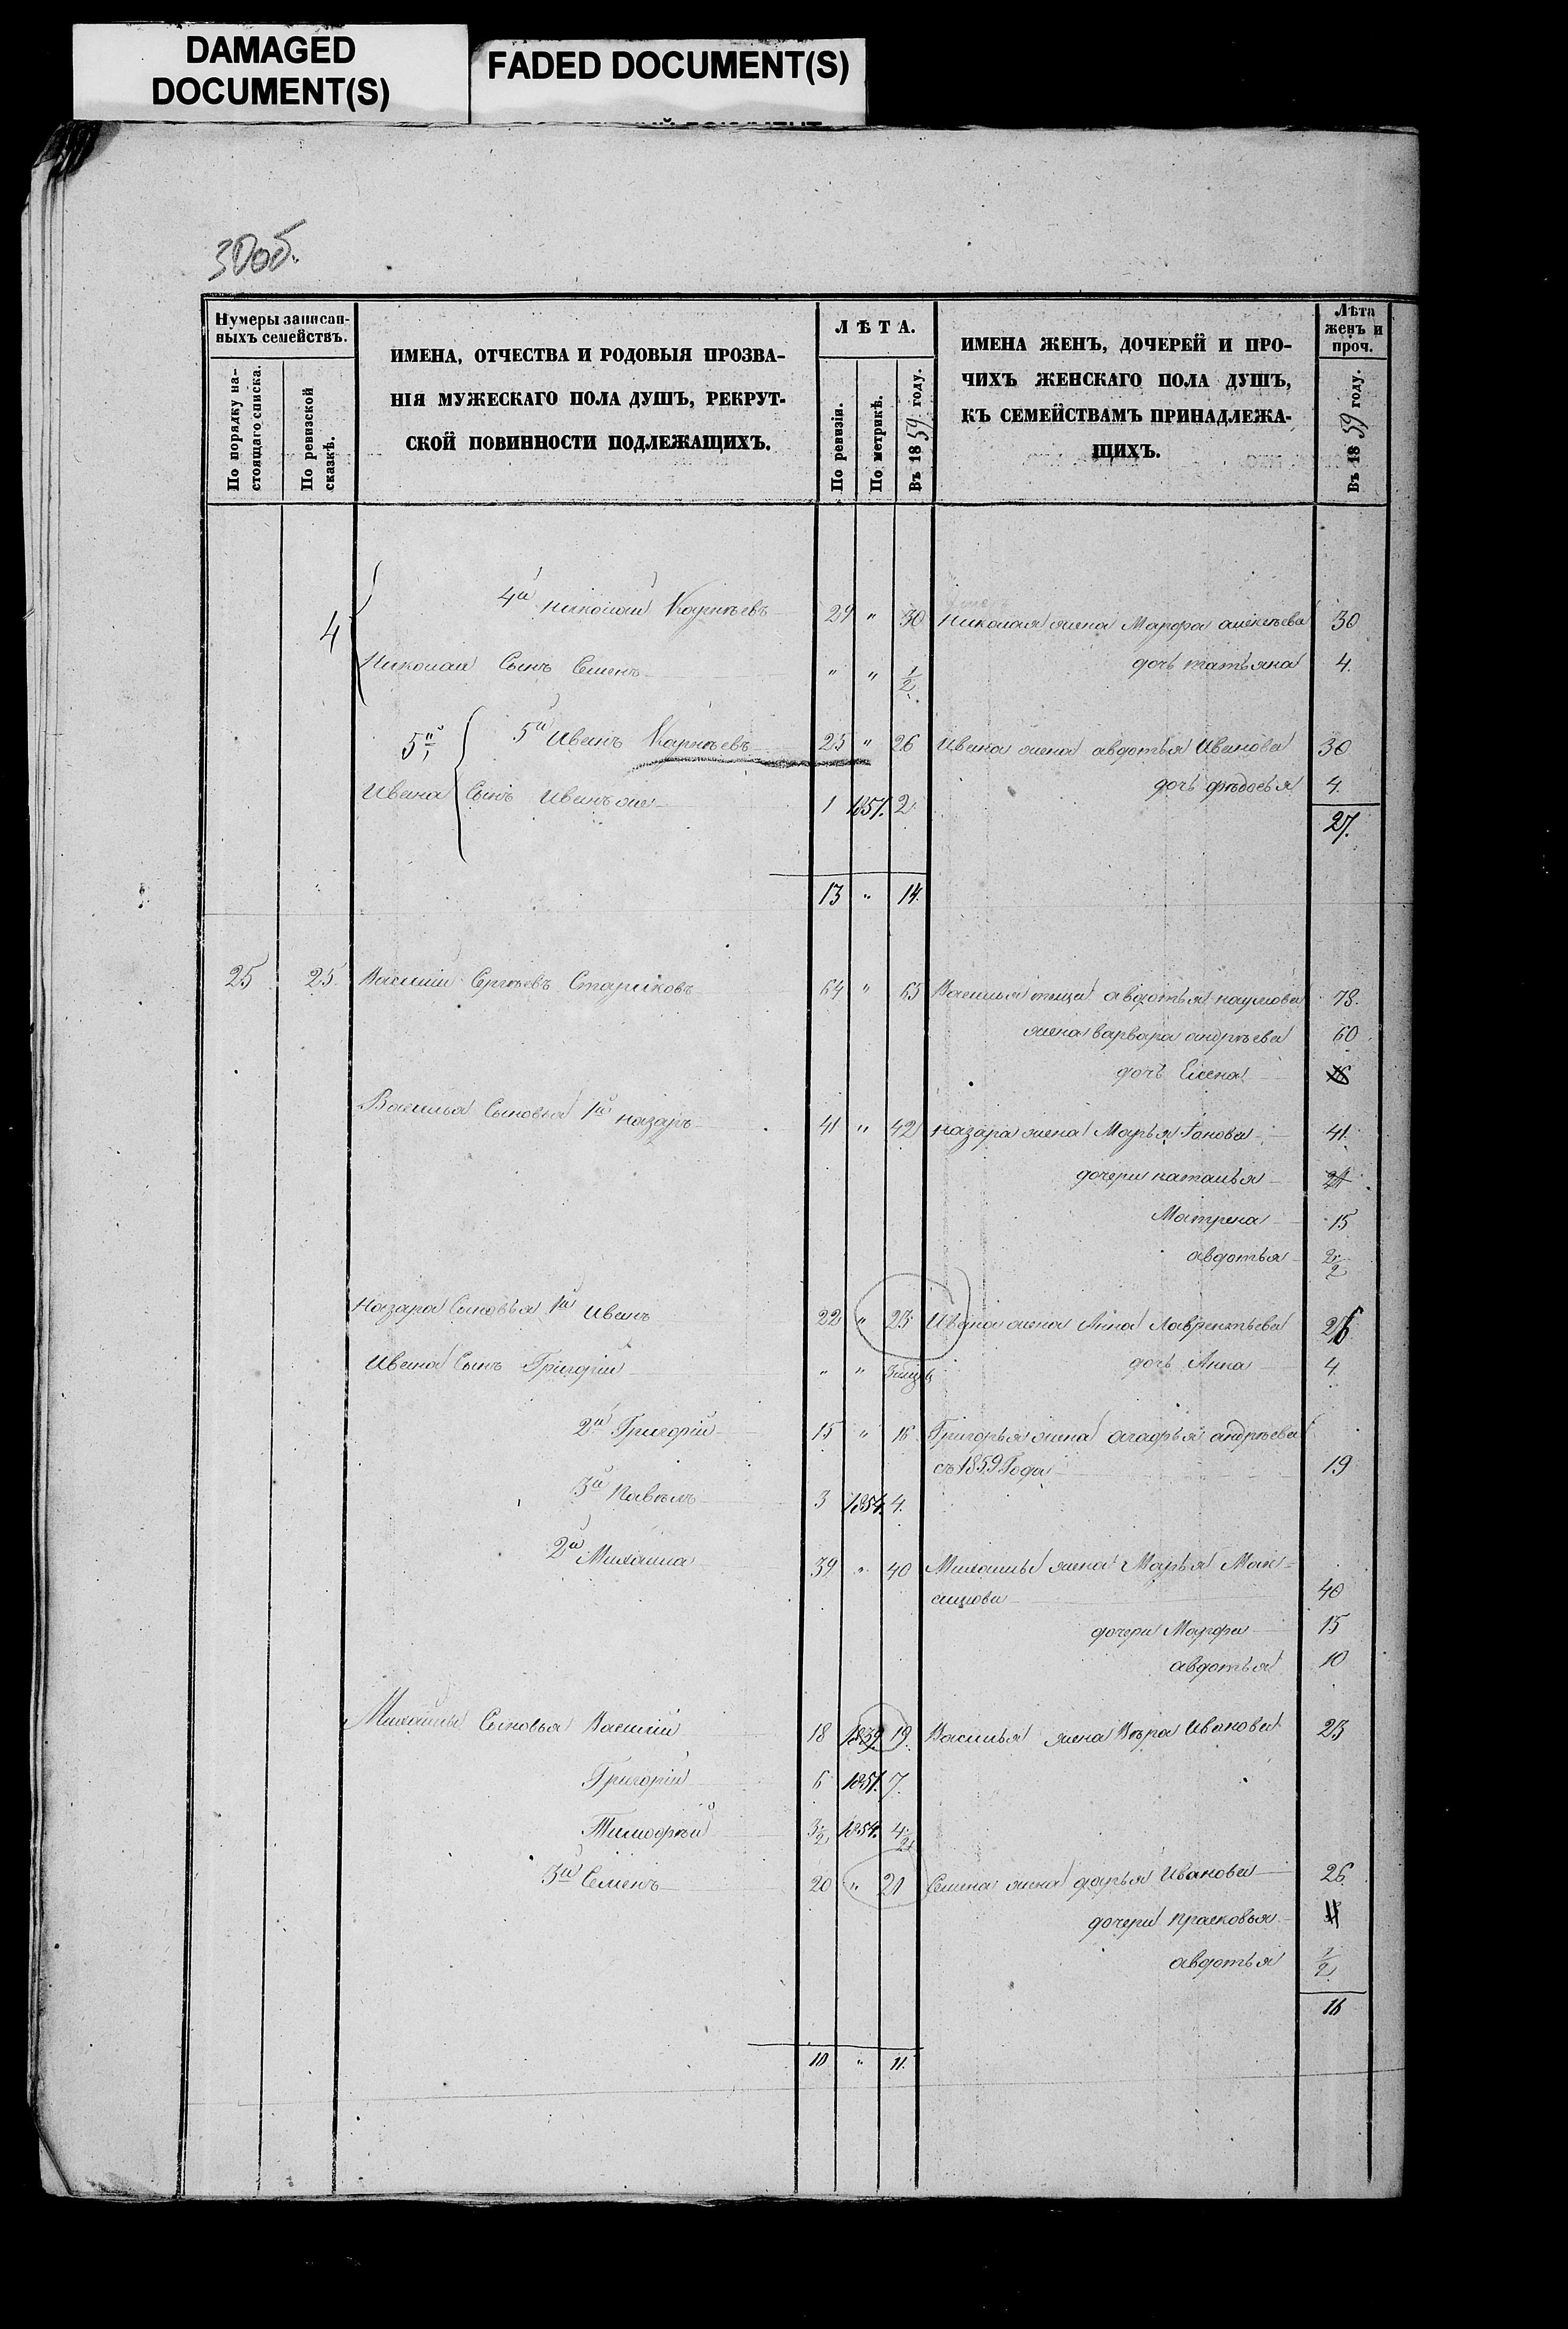 DAMAGED
DOCUMENT(S)
FADED DOCUMENT(S)
30об.
Нумеры записан-
ныхъ семействъ.
По порядку на-
стоящаго списка.
По ревизской
сказкѣ.
ИМЕНА, ОТЧЕСТВА И РОДОВЫЯ ПРОЗВА-
НІЯ МУЖЕСКАГО ПОЛА ДУШЪ, РЕКРУТ-
СКОЙ ПОВИННОСТИ ПОДЛЕЖАЩИХЪ.
ЛѢТА.
По ревизіи.
По метрикѣ.
Въ 1859 году.
ИМЕНА ЖЕНЪ, ДОЧЕРЕЙ И ПРО-
ЧИХЪ ЖЕНСКАГО ПОЛА ДУШЪ,
КЪ СЕМЕЙСТВАМЪ ПРИНАДЛЕЖА-
ЩИХЪ.
Лѣта
женъ и
проч.
Въ 1859 году.
4 4й Николай 29 " 30 Николая жена Марфа алексѣева 30
Николая Сынъ Семенъ " " 1/2 дочь татьяна 4.
5й 5й Иванъ 25 " 26 Ивана жена авдотья Иванова 30
Ивана Сынъ Иванъ же 1 1857. 2 дочь фѣдосья 4.
27.
13 " 14.
25 25. Василій Сергѣевъ Стариковъ 64 " 65 Василья теща авдотья наумова 78.
жена варвара андрѣева 60
дочь Елена
Василья Сыновья 1й назаръ 41 " 42 назара жена Марья 41.
дочери наталья 24
Матрена 15
авдотья 2 1/2
назара Сыновья 1й Иванъ 22 " 23 Ивана жена Анна Лаврентьева 26
Ивана Сынъ Григорій " " дочь Анна 4
2й Григорій 15 " 16 Григорья жена агафья андрѣева
съ 1859 Года 19
3й Павелъ 3 1854. 4.
2й Михаила 39 " 40 Михаилы жена Марья Мак-
симова 40
дочери Марфа 15
авдотья 10
Михаилы Сыновья Василій 18 1839. 19. Василья жена Вѣра Иванова 23
Григорій 6 1851. 7.
Тимофѣй 3 1/2 1854. 4 1/2
3й Семенъ 20 " 21 Семена жена дарья Иванова 26.
дочери прасковья
авдотья 1/2
16
10 " 11.